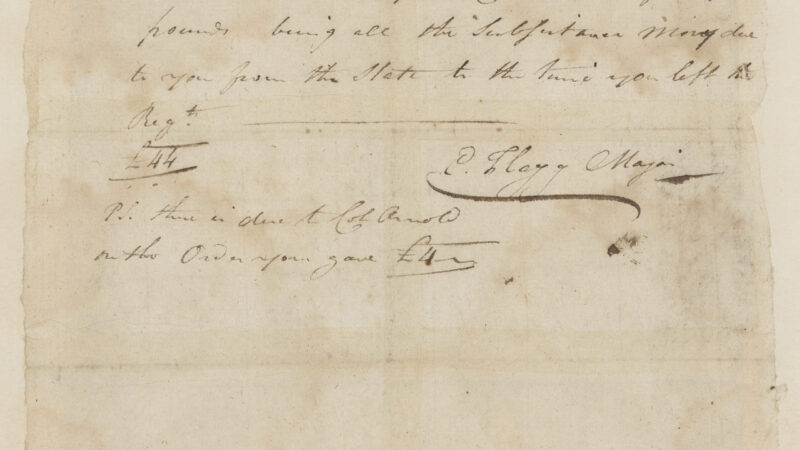 pounds being all the Subsistance Money due
to you from the State to the time you left the
Regt.
£44
E. Flagg Major
P.S. there is due to Col. Arnold
on the Order you gave £4